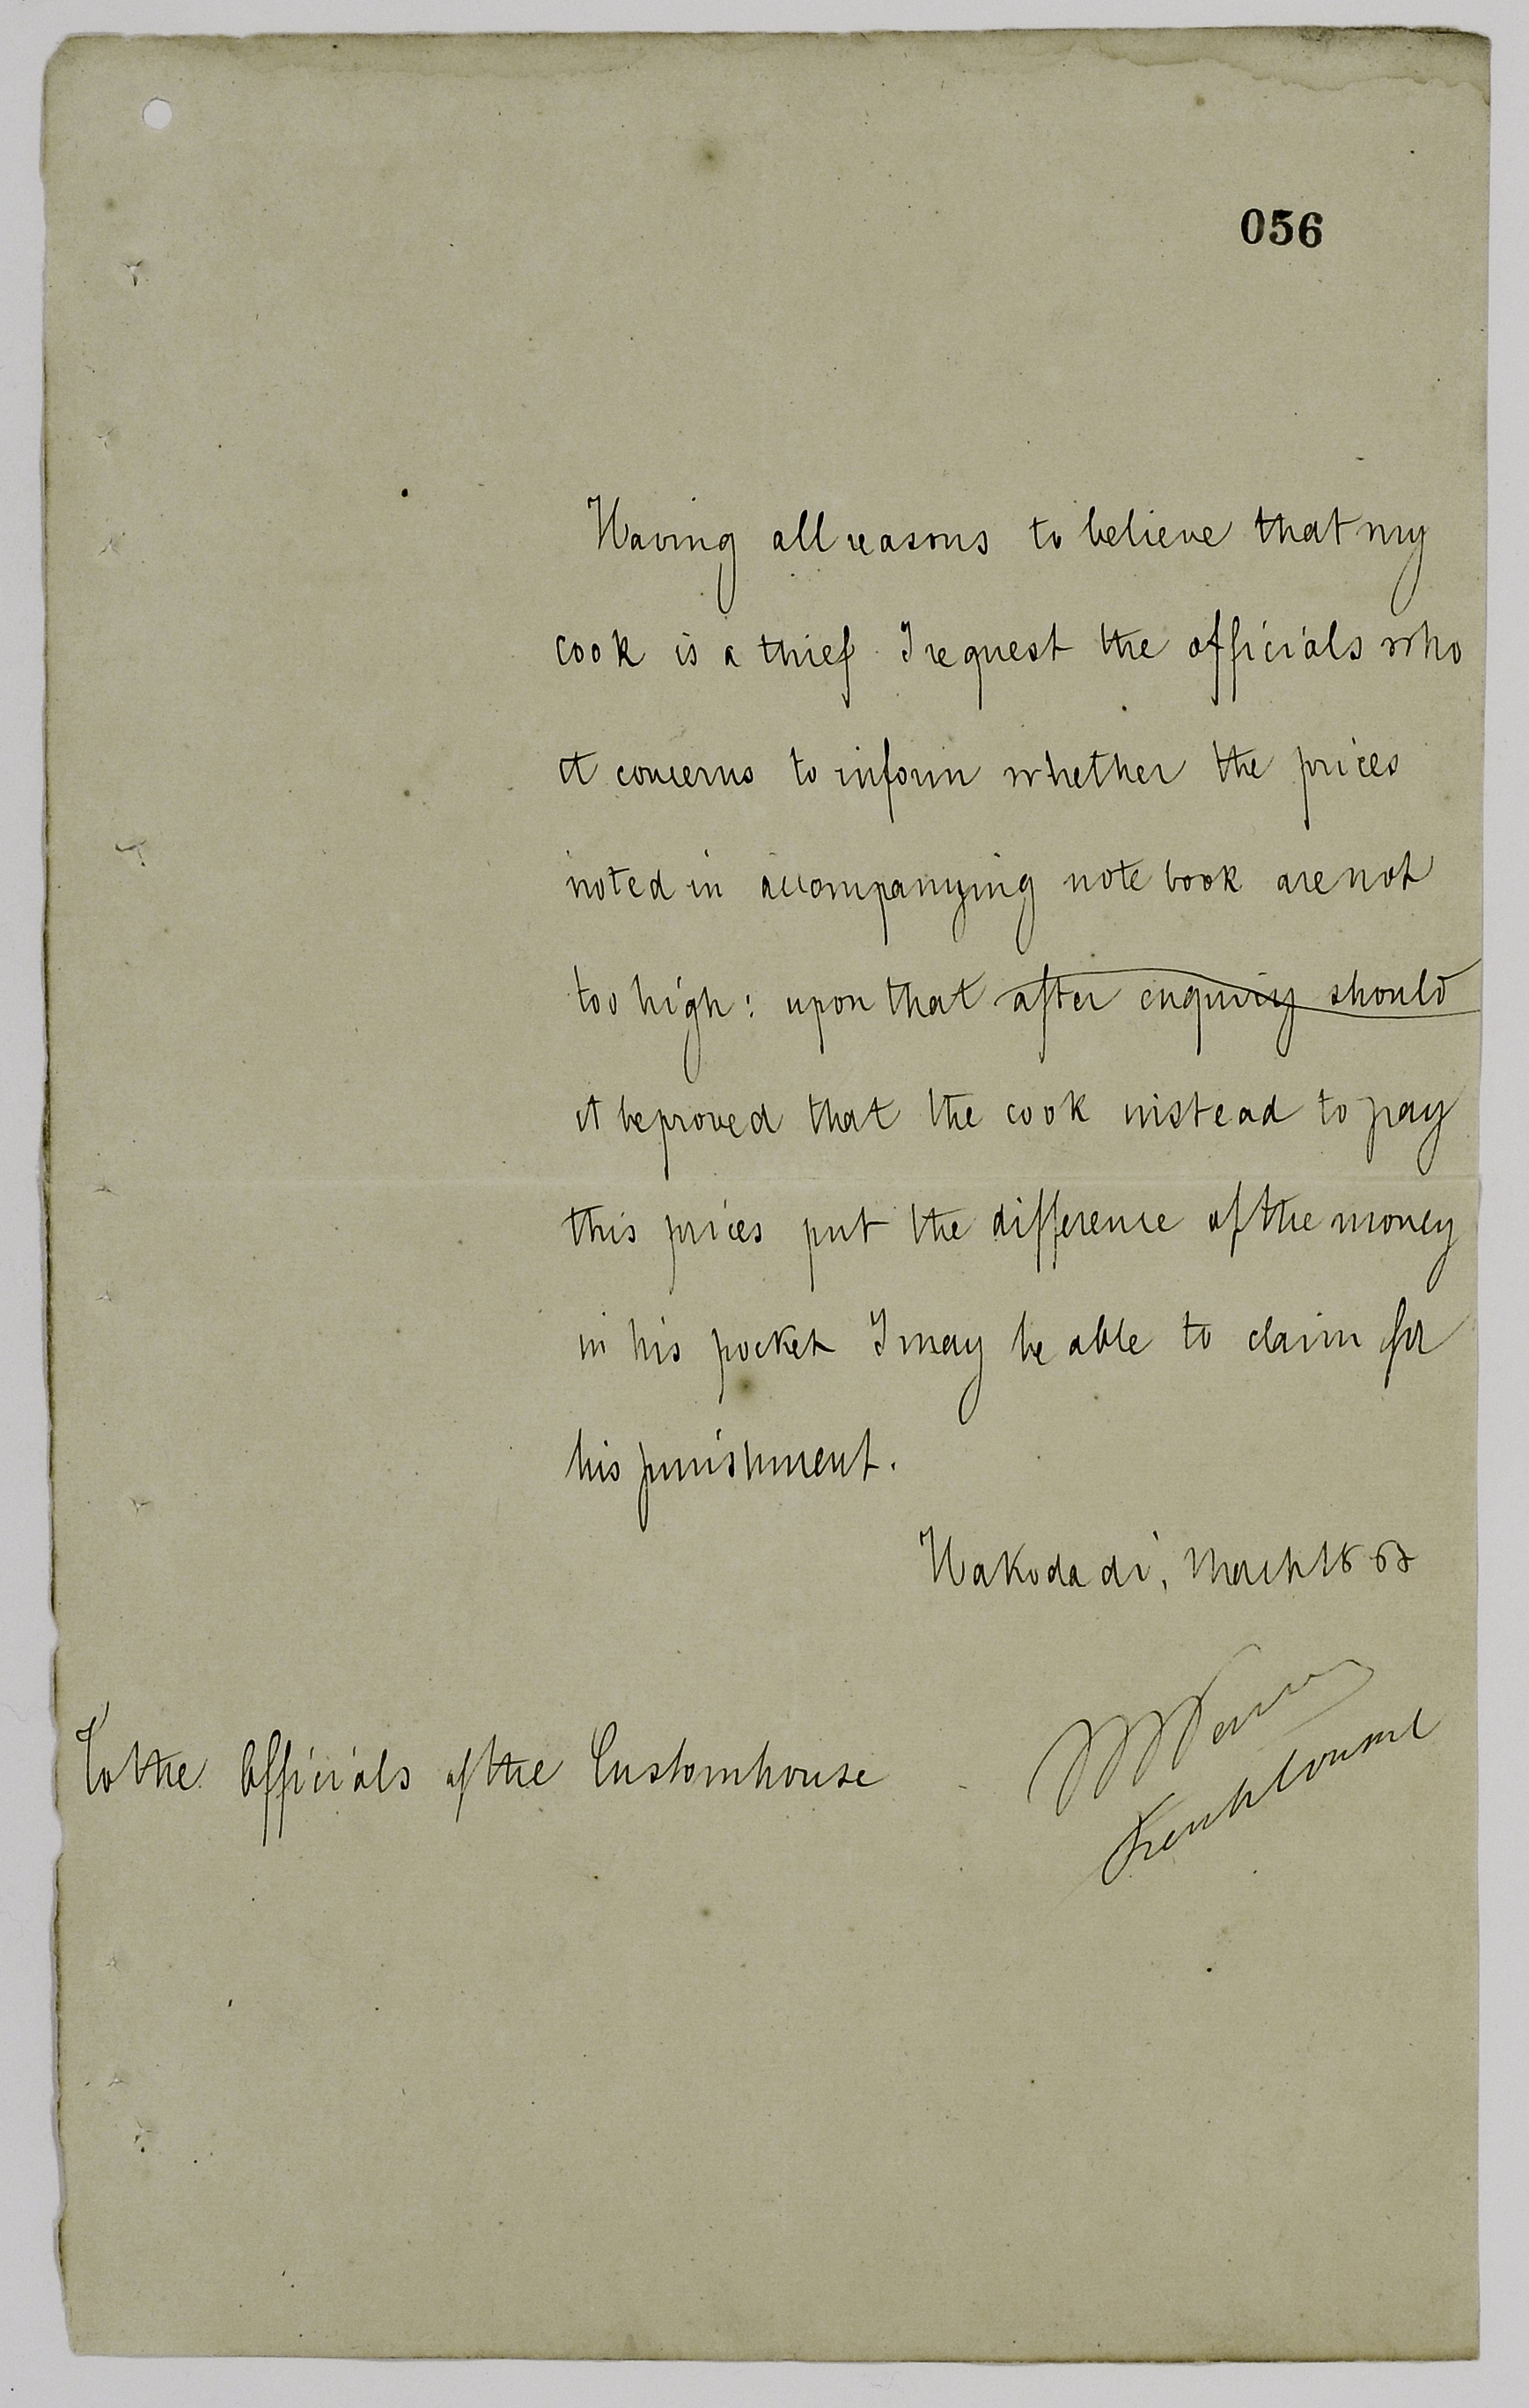 056
Having all reasons to believe that my
cook is a thief I request the officials who
it concerns to inform whether the prices
noted in accompanying note book are not
too high: upon that after enquiry should
it be proved that the cook instead to pay
this prices put the difference of the money
in his pocket I may be able to claim for
his punishment.
Hakodadi, March 18
To the Officials of the Customhouse